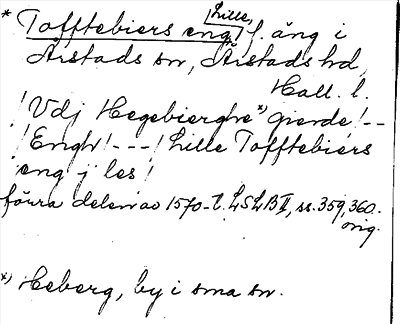 * Tofftebiers eng, [Lille,] f. äng i
Årstads sn, Årstads hd,
Hall. l.
! Vdj Hegebierghe *) gierde ! --
! Engh ! --- ! Lille Tofftebiers
eng j les !
förra delen av 1570-t. LSLB II, ss. 359, 360.
orig.
*) Heberg, by i sma sn.